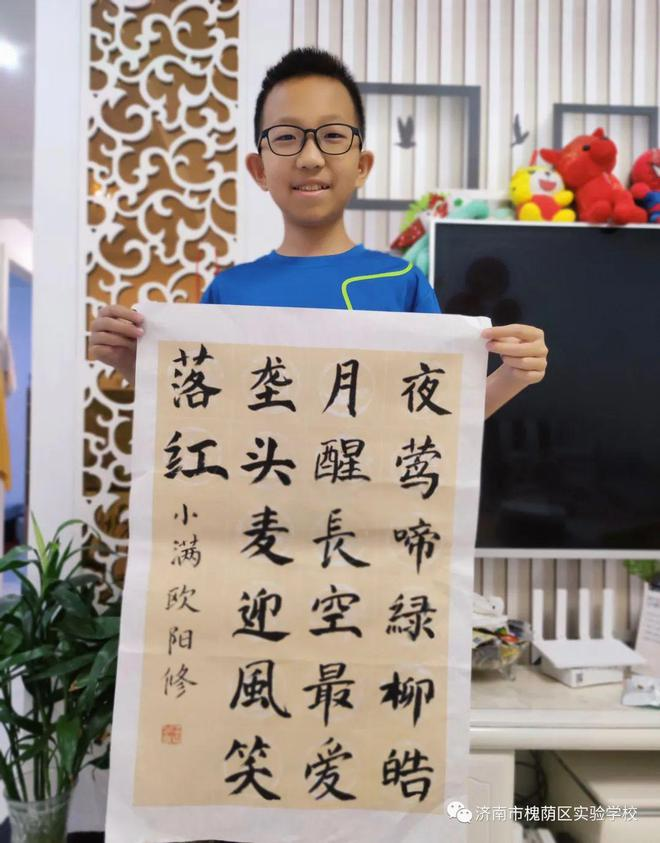 夜莺啼緑柳皓
月醒長空最爱
垄头麦迎風笑
落红
小满欧阳修
济南市槐荫区实验学校